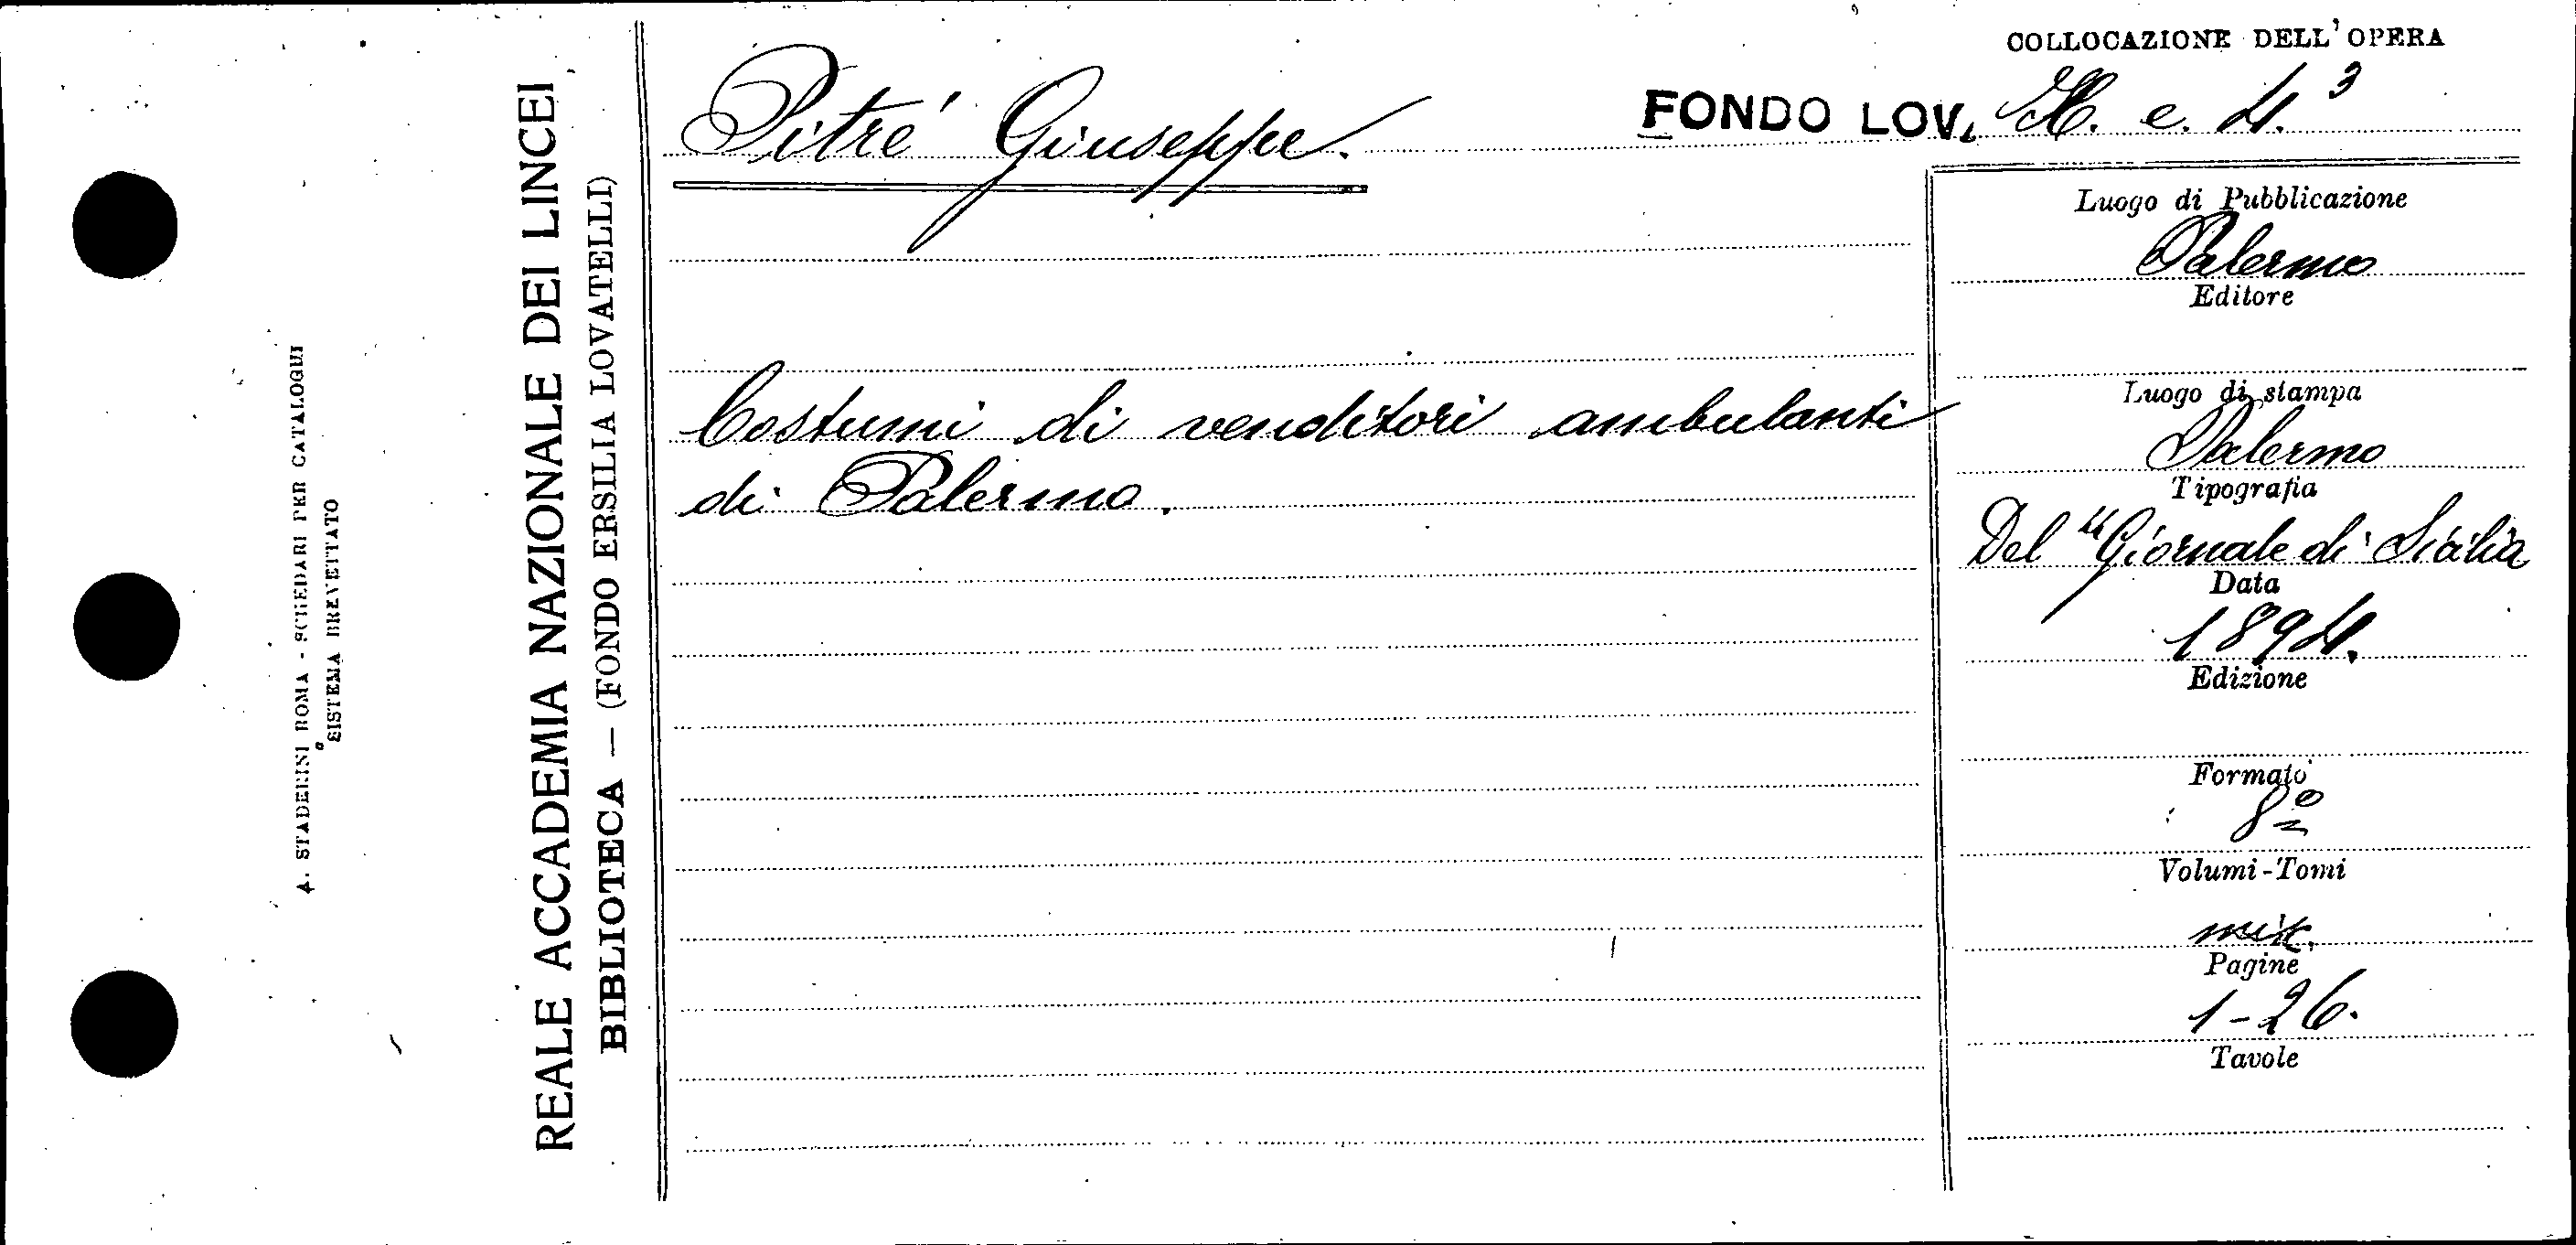 COLLOCAZIONE DELL'OPERA
Pitré Giuseppe.
FONDO LOV. e. 4.³
Luogo di Pubblicazione
Palermo
Editore
Costumi di venditori ambulanti
di Palermo.
Luogo di stampa
Palermo
Tipografia
Del "Giornale di Sicilia
Data
1894.
Edizione
Formato
8º
Volumi-Tomi
Pagine
1-26.
Tavole
REALE ACCADEMIA NAZIONALE DEI LINCEI
BIBLIOTECA — (FONDO ERSILIA LOVATELLI)
A. STADERINI ROMA - SCHEDARI PER CATALOGHI
SISTEMA BREVETTATO